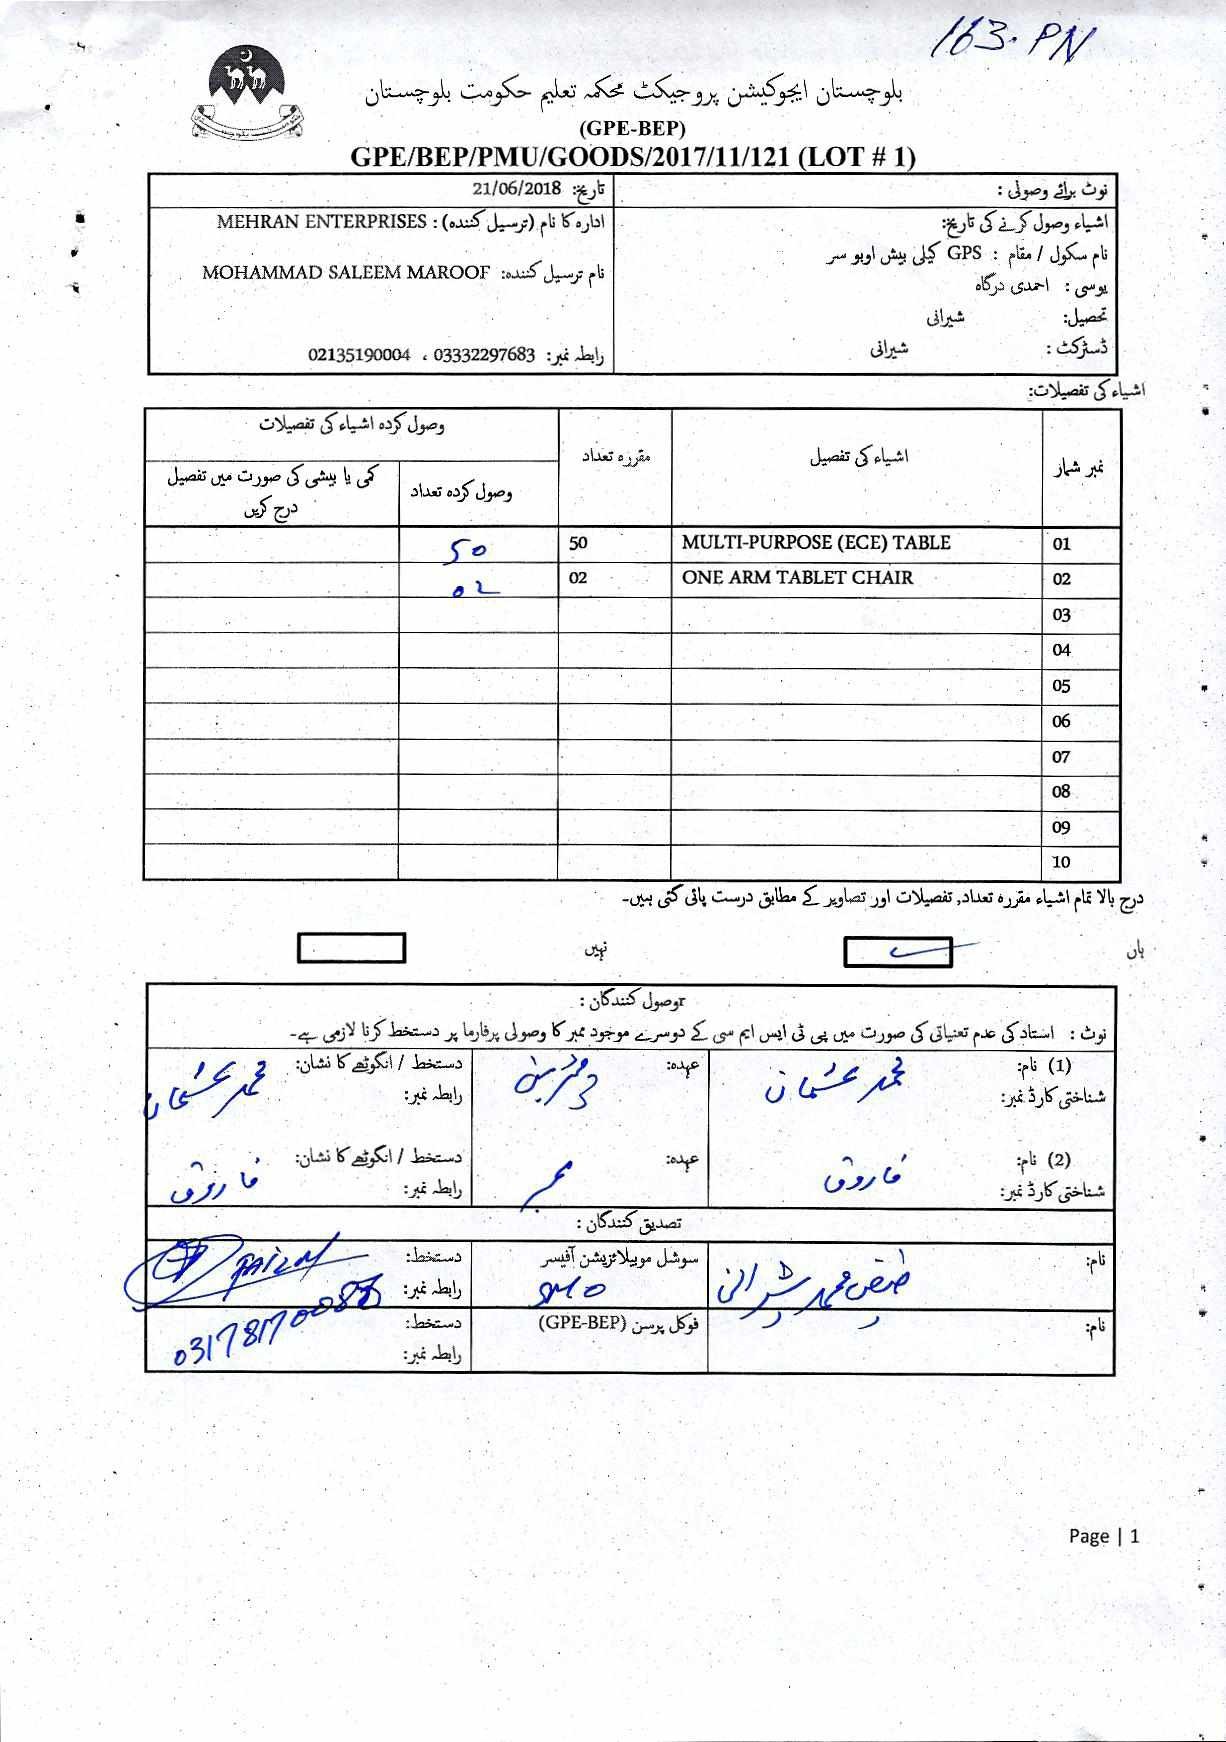 163. PN
بلوچستان ایجوکیشن پروجیکٹ محکمہ تعلیم حکومت بلوچستان
(GPE-BEP)
GPE/BEP/PMU/GOODS/2017/11/121 (LOT # 1)
نوٹ برائے وصولی :
تاریخ: 21/06/2018
اشیاء وصول کرنے کی تاریخ:
نام سکول / مقام : GPS کیلی بیش اوبو سر
یوسی : احمدی درگاہ
تحصیل: شیرانی
ڈسٹرکٹ : شیرانی
ادارہ کا نام (ترسیل کنندہ) : MEHRAN ENTERPRISES
نام ترسیل کنندہ: MOHAMMAD SALEEM MAROOF
رابطہ نمبر: 03332297683 ، 02135190004
اشیاء کی تفصیلات:
نمبر شمار اشیاء کی تفصیل مقررہ تعداد وصول کردہ اشیاء کی تفصیلات
وصول کردہ تعداد کمی یا بیشی کی صورت میں تفصیل درج کریں
01 MULTI-PURPOSE (ECE) TABLE 50 50
02 ONE ARM TABLET CHAIR 02 02
03
04
05
06
07
08
09
10
درج بالا تمام اشیاء مقررہ تعداد, تفصیلات اور تصاویر کے مطابق درست پائی گئی ہیں۔
ہاں نہیں
وصول کنندگان :
نوٹ : استاد کی عدم تعنیاتی کی صورت میں پی ٹی ایس ایم سی کے دوسرے موجود ممبر کا وصولی پرفارما پر دستخط کرنا لازمی ہے۔
(1) نام: محمد عثمان عہدہ: دستخط / انگوٹھے کا نشان: محمد عثمان
شناختی کارڈ نمبر: رابطہ نمبر:
(2) نام: فاروق عہدہ: ممبر دستخط / انگوٹھے کا نشان: فاروق
شناختی کارڈ نمبر: رابطہ نمبر:
تصدیق کنندگان :
نام: محمد شیرانی سوشل موبیلائزیشن آفیسر SMO دستخط: FAIZM
رابطہ نمبر:
نام: فوکل پرسن (GPE-BEP) دستخط:
رابطہ نمبر:
Page | 1